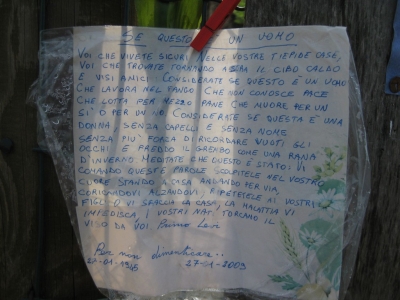 SE QUESTO UN UOMO
VOI CHE VIVETE SICURI NELLE VOSTRE TIEPIDE CASE,
VOI CHE TROVATE TORNANDO A SERA IL CIBO CALDO
E VISI AMICI: CONSIDERATE SE QUESTO È UN UOMO
CHE LAVORA NEL FANGO CHE NON CONOSCE PACE
CHE LOTTA PER MEZZO PANE CHE MUORE PER UN
SI' O PER UN NO CONSIDERATE SE QUESTA È UNA
DONNA, SENZA CAPELLI E SENZA NOME
SENZA PIU' FORZA DI RICORDARE VUOTI GLI
OCCHI E FREDDO IL GREMBO COME UNA RANA
D'INVERNO. MEDITATE CHE QUESTO È STATO: VI
COMANDO QUESTE PAROLE SCOLPITELE NEL VOSTRO
CUORE STANDO IN CASA ANDANDO PER VIA,
CORICANDOVI ALZANDOVI, RIPETETELE AI VOSTRI
FIGLI O VI SFACCIA LA CASA, LA MALATTIA VI
IMPEDISCA, I VOSTRI NATI TORCANO IL
VISO DA VOI Primo Levi
Per non dimenticare..
27-01-1945 27-01-2009